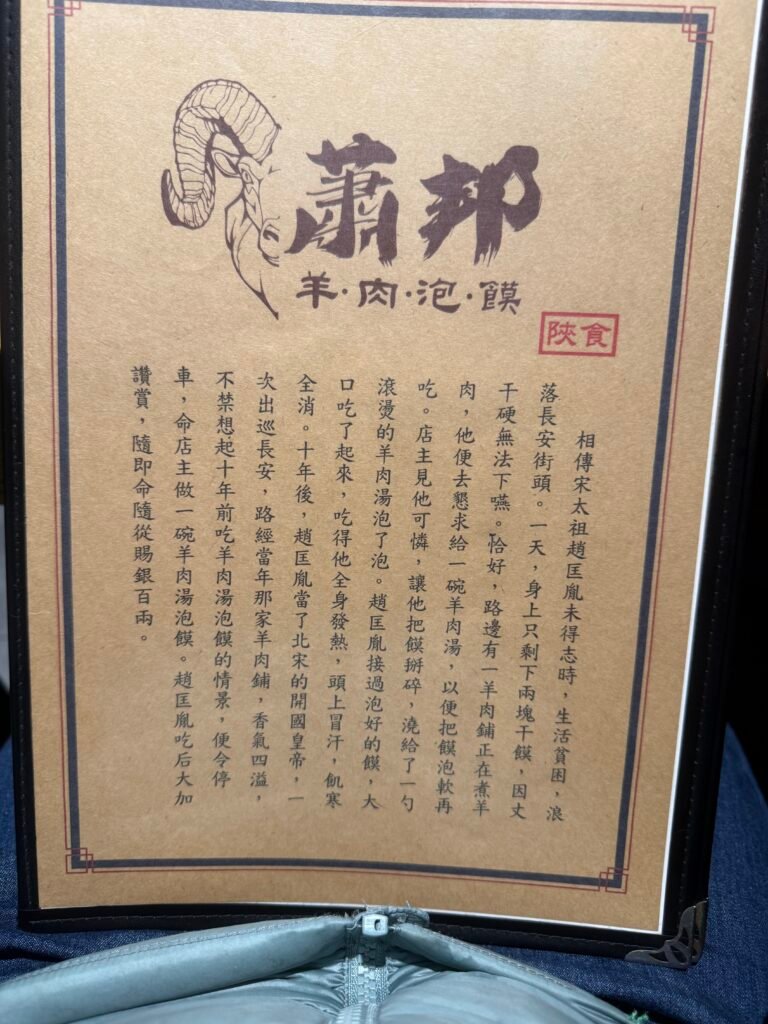 蕭邦
羊·肉·泡·饃
陝食
相傳宋太祖趙匡胤未得志時，生活貧困，浪
落長安街頭。一天，身上只剩下兩塊干饃，因丈
干硬無法下嚥。恰好，路邊有一羊肉鋪正在煮羊
肉，他便去懇求給一碗羊肉湯，以便把饃泡軟再
吃。店主見他可憐，讓他把饃掰碎，澆給了一勺
滾燙的羊肉湯泡了泡。趙匡胤接過泡好的饃，大
口吃了起來，吃得他全身發熱，頭上冒汗，飢寒
全消。十年後，趙匡胤當了北宋的開國皇帝，一
次出巡長安，路經當年那家羊肉鋪，香氣四溢，
不禁想起十年前吃羊肉湯泡饃的情景，便令停
車，命店主做一碗羊肉湯泡饃。趙匡胤吃后大加
讚賞，隨即命隨從賜銀百兩。